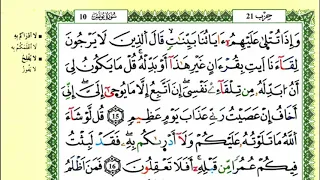 10 سورة يونس
حزب 21
وَإِذَا تُتْلَىٰ عَلَيْهِمُۥٓ ءَايَاتُنَا بَيِّنَٰتٖ قَالَ ٱلذِينَ لَا يَرْجُونَ
لِقَآءَنَا ٱيتِ بِقُرْءَانٍ غَيْرِ هَٰذَآ أَوْ بَدِّلْهُ قُلْ مَا يَكُونُ لِيَ
أَنُ ابَدِّلَهُۥ مِن تِلْقَآءِےْ نَفْسِيَ إِنَ اَتَّبِعُ إِلَّا مَا يُوحَىٰٓ إِلَيَّ إِنِّيَ
أَخَافُ إِنْ عَصَيْتُ رَبِّے عَذَابَ يَوْمٍ عَظِيمٖ 15 قُل لَّوْ شَآءَ
اَللَّهُ مَا تَلَوْتُهُۥ عَلَيْكُمْ وَلَآ أَدْرَىٰكُم بِهِۦ فَقَد لَّبِثْتُ
فِيكُمْ عُمُرًا مِّن قَبْلِهِۦٓ أَفَلَا تَعْقِلُونَ 16 فَمَنَ اَظْلَمُ
لا أدراكم به
لا أعلمكم به
لا يفلح
لا يفوز